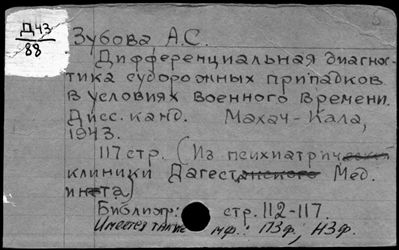 Д43
88
Зубова, А.С.
Дифференциальная диагнос-
тика судорожных припадков
в условиях военного времени.
Дисс. канд. Махач-Кала,
1943.
117 стр. (Из психиатрической
клиники Дагестанского Мед.
инта)
Библиогр: стр. 112-117.
Имеется также мф.: ПЗф; НЗф.